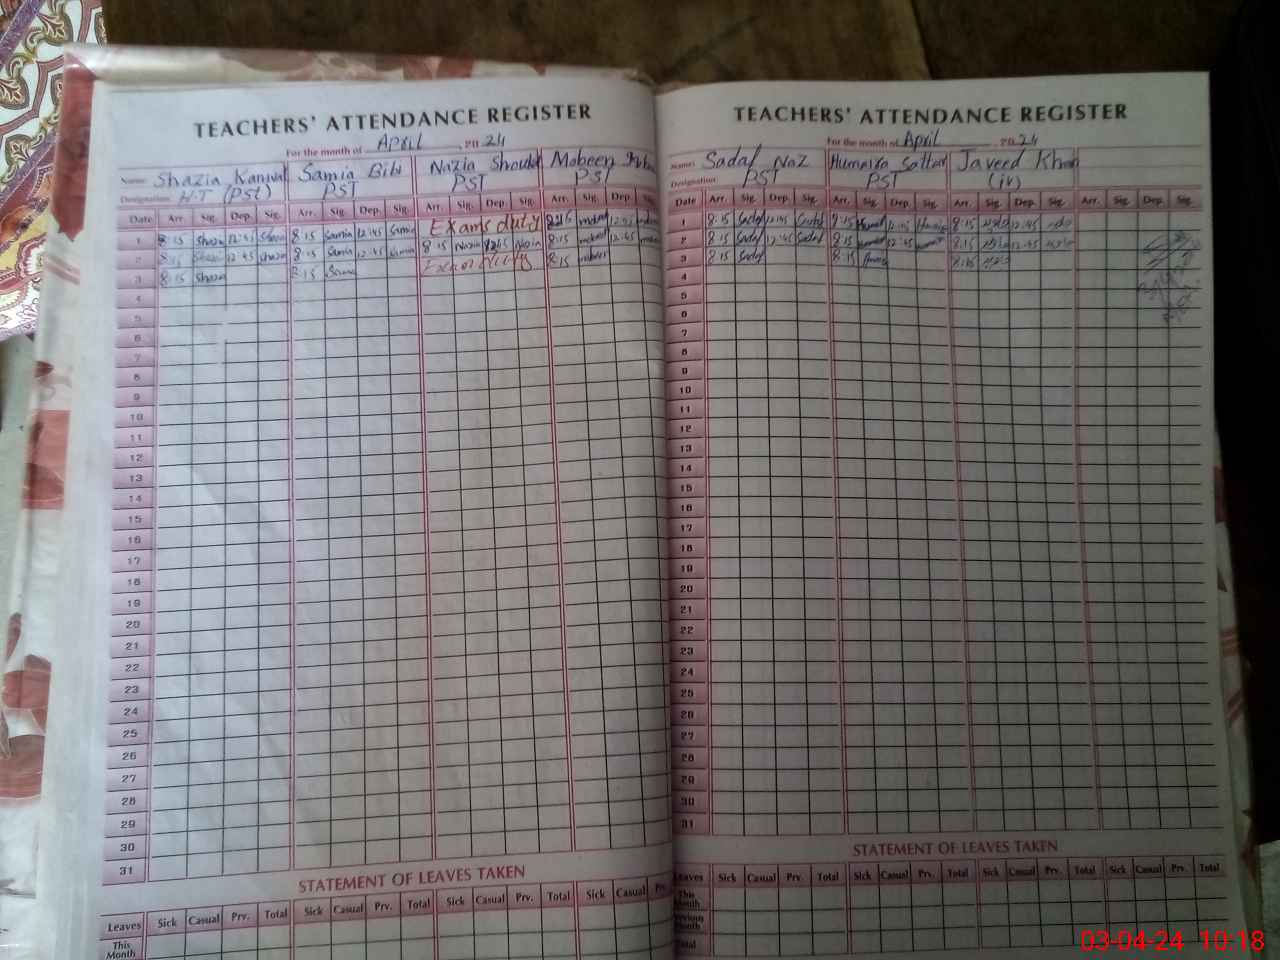 TEACHERS' ATTENDANCE REGISTER
For the month of April 2024
Name: Shazia Kanwal Samia Bibi Nazia Mobeen
Designation: H.T (PST) PST PST PST
Date Arr. Sig. Dep. Sig. Arr. Sig. Dep. Sig. Arr. Sig. Dep. Sig. Arr. Sig. Dep. Sig.
1 8:15 Shazia 12:45 Shazia 8:15 Samia 12:45 Samia Exams duty 8:15 12:45
2 8:15 Shazia 12:45 Shazia 8:15 Samia 12:45 Samia 8:15 Nazia 12:45 Nazia 8:15 12:45
3 8:15 Shazia 8:15 Samia Exam duty 8:15
4
5
6
7
8
9
10
11
12
13
14
15
16
17
18
19
20
21
22
23
24
25
26
27
28
29
30
31
STATEMENT OF LEAVES TAKEN
Leaves Sick Casual Prv. Total Sick Casual Prv. Total Sick Casual Prv. Total Sick Casual
This Month
TEACHERS' ATTENDANCE REGISTER
For the month of April 2024
Name: Sadaf Naz Humaira Sattar Javeed Khan
Designation: PST PST (iv)
Date Arr. Sig. Dep. Sig. Arr. Sig. Dep. Sig. Arr. Sig. Dep. Sig. Arr. Sig. Dep. Sig.
1 8:15 Sadaf 12:45 Sadaf 8:15 12:45 8:15 12:45
2 8:15 Sadaf 12:45 Sadaf 8:15 12:45 8:15 12:45
3 8:15 Sadaf 8:15 8:15
4
5
6
7
8
9
10
11
12
13
14
15
16
17
18
19
20
21
22
23
24
25
26
27
28
29
30
31
STATEMENT OF LEAVES TAKEN
Leaves Sick Casual Prv. Total Sick Casual Prv. Total Sick Casual Prv. Total Sick Casual Prv. Total
This Month
Previous Month
Total
03-04-24 10:18